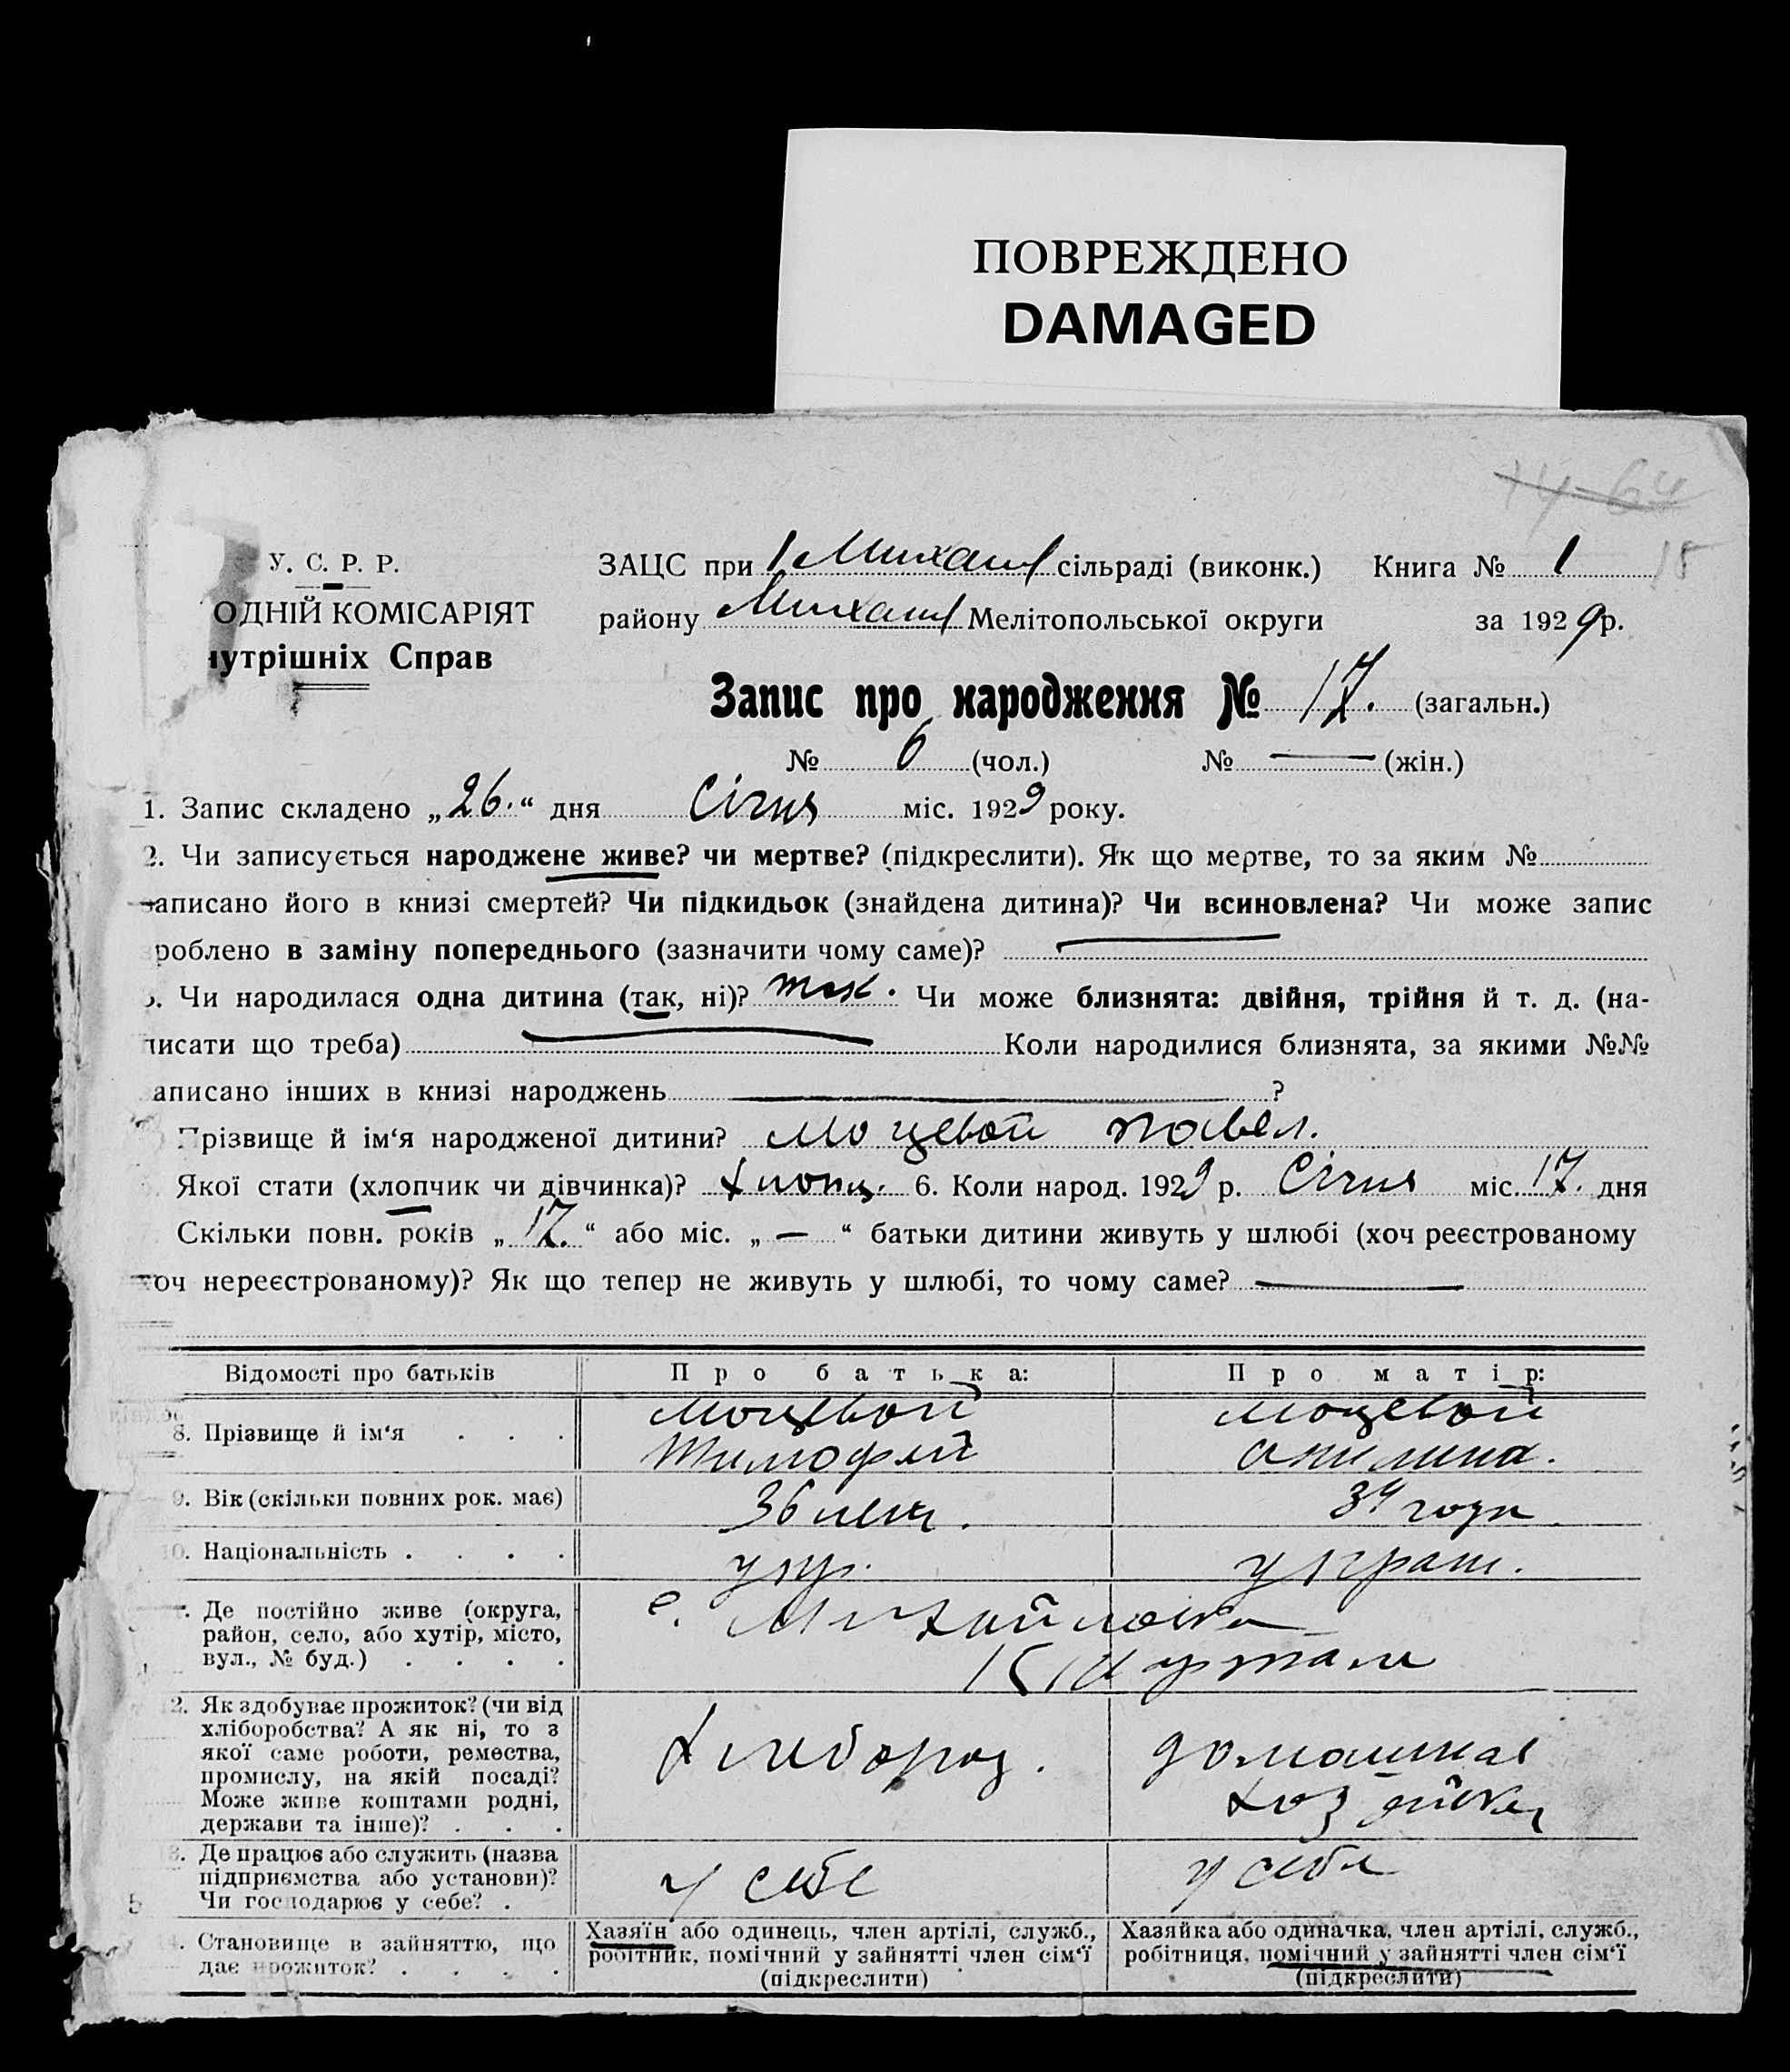 ПОВРЕЖДЕНО
DAMAGED
14-64
15
У. С. Р. Р.
ОДНІЙ КОМІСАРІЯТ
нутрішніх Справ
ЗАЦС при 1 Михайл сільраді (виконк.) Книга № 1
району Михайл Мелітопольської округи за 1929 р.
Запис про народження № 17. (загальн.)
№ 6 (чол.) № — (жін.)
1. Запис складено „26.“ дня Січня міс. 1929 року.
2. Чи записується народжене живе? чи мертве? (підкреслити). Як що мертве, то за яким №
записано його в книзі смертей? Чи підкидьок (знайдена дитина)? Чи всиновлена? Чи може запис
роблено в заміну попереднього (зазначити чому саме)? —
Чи народилася одна дитина (так, ні)? так. Чи може близнята: двійня, трійня й т. д. (на-
писати що треба) — Коли народилися близнята, за якими №№
аписано інших в книзі народжень — ?
Прізвище й ім‘я народженої дитини? Моцевой Павел.
Якої стати (хлопчик чи дівчинка)? Хлопц. 6. Коли народ. 1929 р. Січня міс. 17. дня
Скільки повн. років „17.“ або міс. „—“ батьки дитини живуть у шлюбі (хоч реєстрованому
хоч нереєстрованому)? Як що тепер не живуть у шлюбі, то чому саме? —
Відомості про батьків
Про батька:
Про матір:
8. Прізвище й ім‘я . . .
Моцевой
Тимофей
Моцевой
Акилина.
9. Вік (скільки повних рок. має)
36 лет.
34 года
10. Національність . . . .
укр.
украин.
Де постійно живе (округа,
район, село, або хутір, місто,
вул., № буд.) . . . .
с. Михайловка
1 Квартал
12. Як здобуває прожиток? (чи від
хліборобства? А як ні, то з
якої саме роботи, ремества,
промислу, на якій посаді?
Може живе коштами родні,
держави та інше)? . . .
Хлебороб.
домашная
хозяйка
Де працює або служить (назва
підприємства або установи)?
Чи господарює у себе? .
у себе
у себя
Становище в зайняттю, що
дає прожиток? . . . .
Хазяїн або одинець, член артілі, служб.,
робітник, помічний у зайнятті член сім‘ї
(підкреслити)
Хазяйка або одиначка, член артілі, служб.,
робітниця, помічний у зайнятті член сім‘ї
(підкреслити)